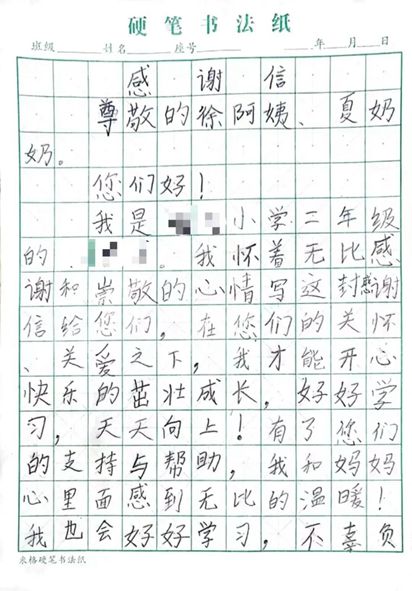 硬笔书法纸
班级 姓名 座号 年 月 日
感谢信
尊敬的徐阿姨、夏奶
奶。
您们好！
我是 小学二年级
的 。我怀着无比感
谢和崇敬的心情写这封感谢
信给您们，在您们的关怀
、关爱之下，我才能开心
快乐的茁壮成长，好好学
习，天天向上！有了您们
的支持与帮助，我和妈妈
心里面感到无比的温暖！
我也会好好学习，不辜负
米格硬笔书法纸